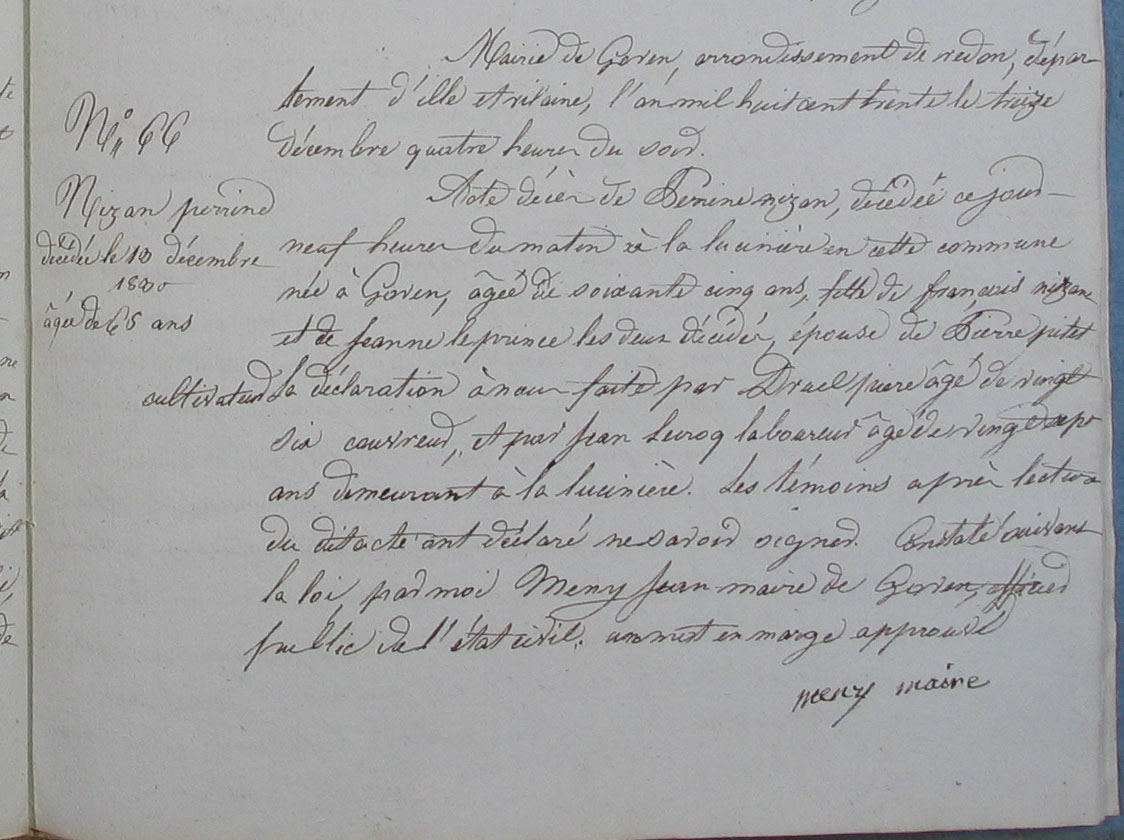 Mairie de Goven, arrondissement de redon, dépar-
tement d'ille et vilaine, l'an mil huit cent trente le treize
décembre quatre heures du soir.
N° 66
Acte décès de Perrine nizan, décédée ce jour
Nizan perrine
décédée le 13 décembre
1830
âgée de 65 ans
neuf heures du matin à la lucinière en cette commune
née à Goven, âgée de soixante cinq ans, fille de françois nizan
et de jeanne le prince les deux décédés, épouse de Pierre pitel
cultivateur
La déclaration à nous faite par Druel pierre âgé de vingt
six couvreur, et par jean Lerog laboureur âgé de vingt sept
ans demeurant à la lucinière. Les témoins après lecture
du dit acte ont déclaré ne savoir signer. Constaté suivant
la loi, par moi Meny jean maire de Goven, officier
public de l'état civil. un mot en marge approuvé
meny maire